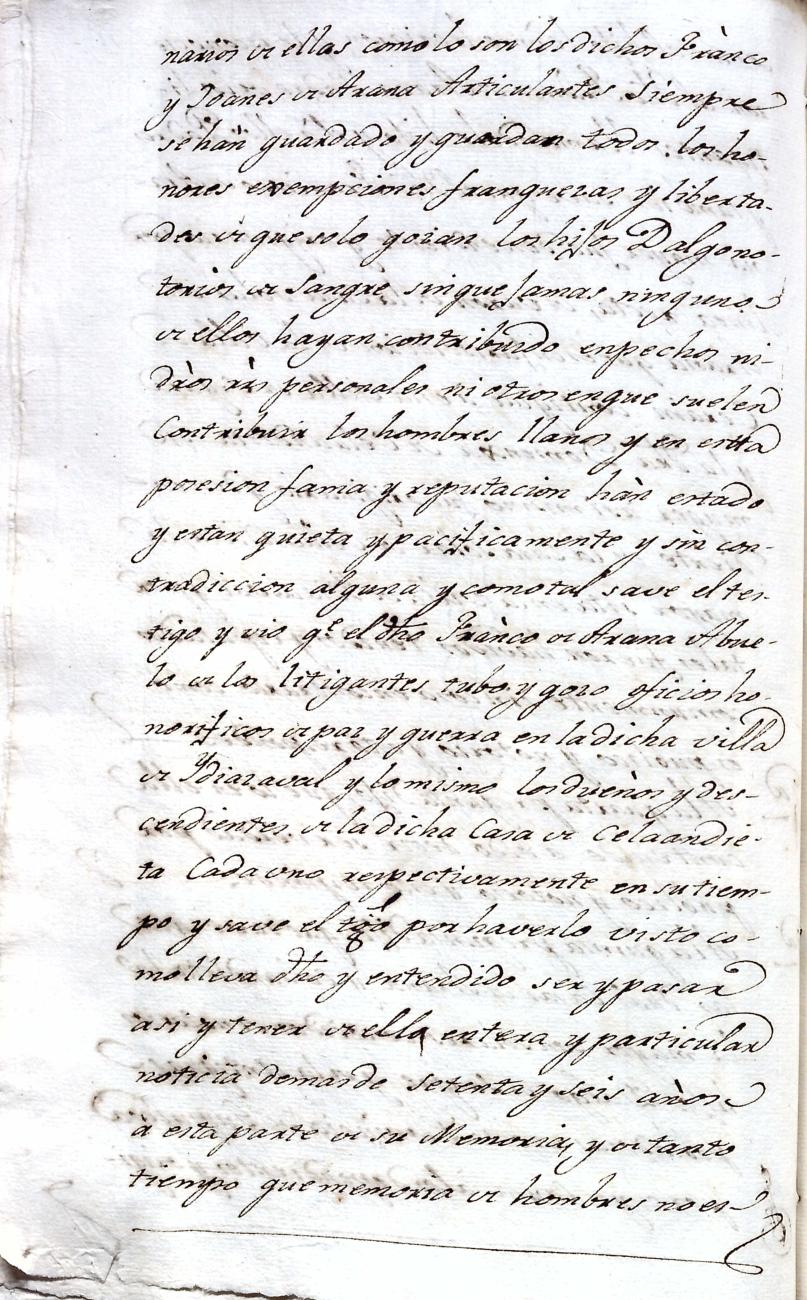 narios de ellas como lo son los dichos Franco
y Joanes de Arana Articulantes Siempre
se han guardado y guardan todos los ho-
nores exempciones franquezas y liberta-
des de que solo gozan los hijos Dalgo no-
torios de Sangre sin que Jamas ninguno
de ellos hayan contribuido en pechos ni
dros rrs personales ni otros en que suelen
Contribuir los hombres llanos y en estta
posesion fama y reputacion hàn estado
y estan quieta y pacificamente y sin con-
tradiccion alguna y como tal save el tes-
tigo y vio qe el dho Franco de Arana Abue-
lo de los litigantes tubo y gozo oficios ho-
norificos de paz y guerra en la dicha villa
de Ydiazaval y lo mismo los dueños y des-
cendientes de la dicha Casa de Celaandie-
ta Cada uno respectivamente en su tiem-
po y save el tgo por haverlo visto co-
mo lleva dho y entendido ser y pasar
asi y tener de ello entera y particular
noticia de mas de Setenta y seis años
à esta parte de su Memoria, y de tanto
tiempo que memoria de hombres no es-